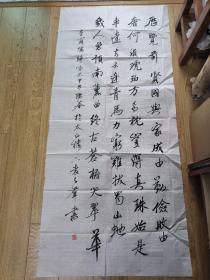 歷覽前賢國與家成由勤儉敗由
奢何須琥珀方為枕豈得真珠始是
車遠去不逢青馬力窮難拔蜀山蛇
幾人曾預南熏曲終古蒼梧哭翠華
李商隱詠史